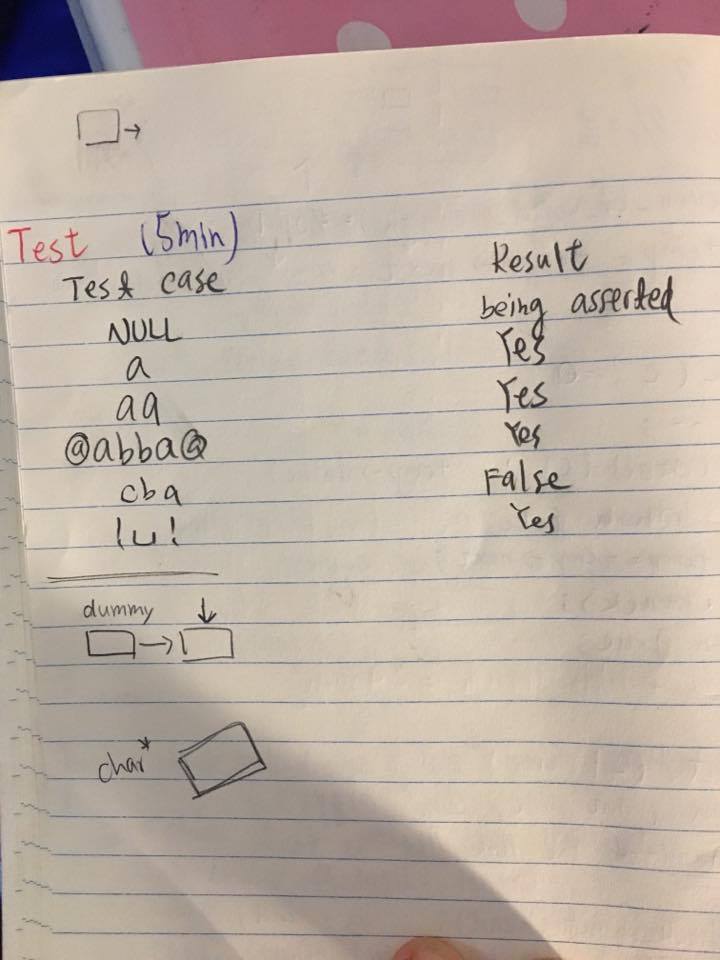 Test (5min)
Test case Result
NULL being asserted
a Yes
aa Yes
@abba@ Yes
cba False
!u! Yes
dummy
char*